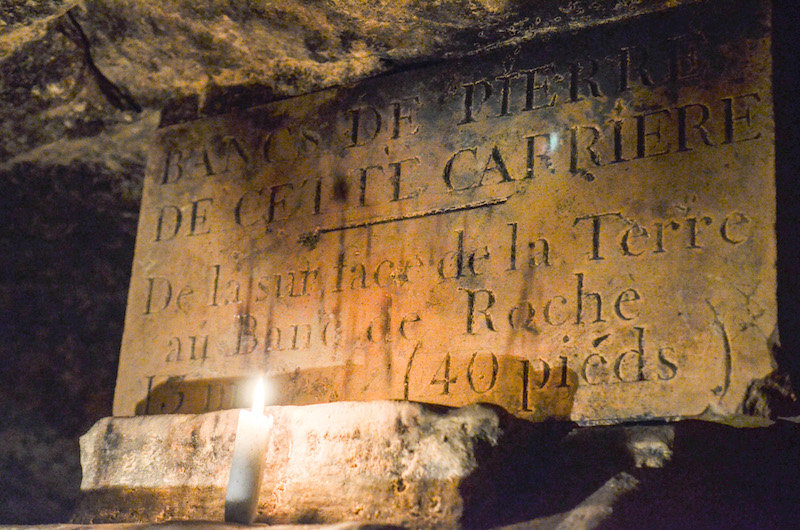 BANCS DE PIERRE
DE CETTE CARRIÈRE
De la surface de la Terre
au Banc de Roche
13 (40 pieds)